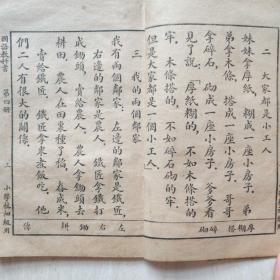 二　大家都是小工
妹妹拿厚紙，糊成一座小房子，弟
弟拿木條，搭成一座小房子，哥哥
拿碎石，砌成一座小房子，爹爹看
見了說：「厚紙糊的，不如木條搭的
牢，木條搭的，不如碎石砌的牢，
但是大家都是一個小工人」
厚糊搭　碎砌
三　我的兩個鄰家
我有兩個鄰家，左邊的鄰家是鐵匠，
右邊的鄰家是農人。鐵匠拿鐵打
成鋤頭，賣給農人。農人拿鋤頭去
耕田。農人在田裏種了稻，舂成米，
賣給鐵匠，鐵匠拿來煮飯吃。他
們二人有很大的關係。
左右　鋤　耕　係
國語教科書　第四冊　小學校初級用